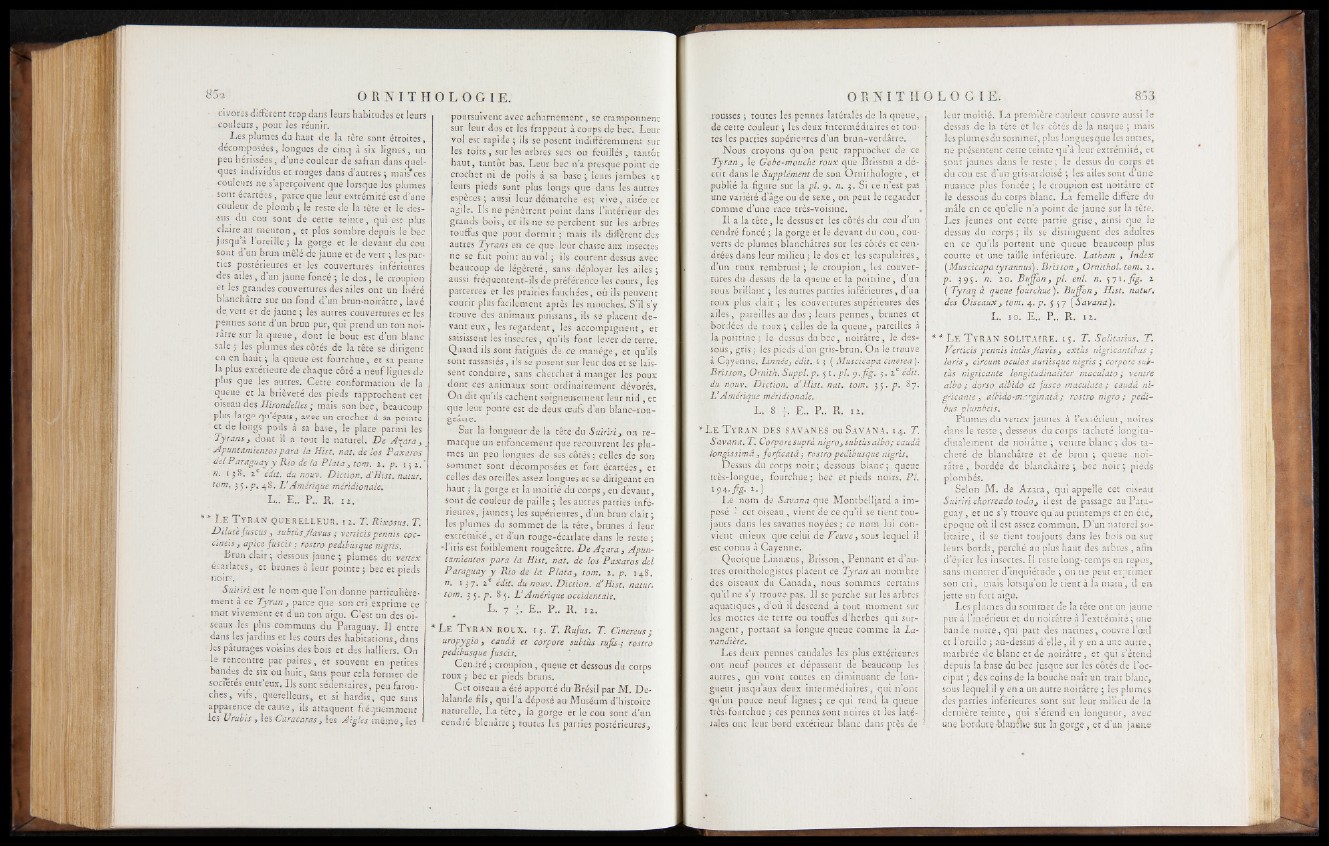 852
ORNITHOLOGIE.
civores diffèrent trop dans leurs habitudes et leurs
couleurs, pour les réunir.
Les plumes du haut de la tête sont étroites,
décomposées, longues de cinq à six lignes, un
peu hérissées, d'une couleur de safran dans quel-
ques individus et rouges dans d'autres ; mais ces
couleurs ne s'aperçoivent que lorsque les plumes
sont écartées, parce que leur extrémité est d'une
couleur de plomb ; le reste de la tête et le des-
sus du cou sont de cette teinte, qui est plus
claire au menton, et plus sombre depuis le bec
jusqu'à l'oreille ; la gorge et le devant du cou
sont d'un brun mêlé de jaune et de vert ; les par-
ties postérieures et les couvertures inférieures
des ailes, d'un jaune foncé ; le dos, le croupion
et les grandes couvertures des ailes ont un liséré
blanchâtre sur un fond d'un brun-noirâtre, lavé
de vert et de jaune ; les autres couvertures et les
pennes sont d'un brun pur, qui prend un ton noi-
râtre sur la queue, dont le bout est d'un blanc
sale ; les plumes des côtés de la tête se dirigent
en en haut ; la queue est fourchue, et sa penne
la plus extérieure de chaque côté a neuf lignes de
plus que les autres. Cette conformation de la
queue et la brièveté des pieds rapprochent cet
oiseau des Hirondelles ; mais son bec, beaucoup
plus large qu'épais, avec un crochet à sa pointe
et de longs poils à sa base, le place parmi les
Tyrans, dont il a tout le naturel. De Azara,
Apuntamientos para la Hist. nat. de los Paxaros
del Paraguay y Rio de la Plata, tom. 2. p. 152.
n. 138. 2e édit. du nouv. Diction. d'Hist. natur.
tom. 35. p. 48. L'Amérique méridionale.
L.. E.. P.. R. 12.
** LE TYRAN QUERELLEUR. 12. T. Rixosus. T.
Dilutè fuscus, subtùs flavus ; verticis pennis coc-
cineis, apice fuscis ; rostro pedibusque nigris.
Brun clair ; dessous jaune ; plumes du vertex
écarlates, et brunes à leur pointe ; bec et pieds
noirs.
Suiriri est le nom que l'on donne particulière-
ment à ce Tyran, parce que son cri exprime ce
mot vivement et d'un ton aigu. C'est un des oi-
seaux les plus communs du Paraguay. Il entre
dans les jardins et les cours des habitations, dans
les pâturages voisins des bois et des halliers. On
le rencontre par paires, et souvent en petites
bandes de six ou huit, sans pour cela former de
sociétés entr'eux. Ils sont sédentaires, peu farou-
ches, vifs, querelleurs, et si hardis, que sans
apparence de cause, ils attaquent fréquemment
les Urubis, les Caracaras, les Aigles même, les
poursuivent avec acharnement, se cramponnent
sur leur dos et les frappent à coups de bec. Leur
vol est rapide ; ils se posent indifféremment sur
les toits, sur les arbres secs ou feuillés, tantôt
haut, tantôt bas. Leur bec n'a presque point de
crochet ni de poils à sa base ; leurs jambes et
leurs pieds sont plus longs que dans les autres
espèces ; aussi leur démarche est vive, aisée et
agile. Ils ne pénètrent point dans l'intérieur des
grands bois, et ils ne se perchent sur les arbres
touffus que pour dormir ; mais ils diffèrent des
autres Tyrans en ce que leur chasse aux insectes
ne se fait point au vol ; ils courent dessus avec
beaucoup de légéreté, sans déployer les ailes ;
aussi fréquentent-ils de préférence les cours, les
parterres et les prairies fauchées, où ils peuvent
courir plus facilement après les mouches. S'il s'y
trouve des animaux puissans, ils se placent de-
vant eux, les regardent, les accompagnent, et
saisissent les insectes, qu'ils font lever de terre.
Quand ils sont fatigués de ce manège, et qu'ils
sont rassasiés, ils se posent sur leur dos et se lais-
sent conduire, sans chercher à manger les poux
dont ces animaux sont ordinairement dévorés.
On dit qu'ils cachent soigneusement leur nid, et
que leur ponte est de deux œufs d'un blanc-rou-
geâtre.
Sur la longueur de la tête du Suiriri, on re-
marque un enfoncement que recouvrent les plu-
mes un peu longues de ses côtés ; celles de son
sommet sont décomposées et fort écartées, et
celles des oreilles assez longues et se dirigeant en
haut ; la gorge et la moitié du corps, en devant,
sont de couleur de paille ; les autres parties infé-
rieures, jaunes ; les supérieures, d'un brun clair ;
les plumes du sommet de la tête, brunes à leur
extrémité, et d'un rouge-écarlate dans le reste ;
l'iris est foiblement rougeâtre. De Azara, Apun-
tamientos para la Hist. nat. de los Paxaros del
Paraguay y Rio de la Plata, tom. 2. p. 148.
n. 137. 2e édit. du nouv. Diction. d'Hist. natur.
tom. 35. p. 87. L'Amérique occidentale.
L. 7 ½. E.. P.. R. 12.
* LE TYRAN ROUX. 13. T. Rufus. T. Cinereus ;
uropygio, caudâ et corpore subtùs rufis ; rostro
pedibusque fuscis.
Cendré ; croupion, queue et dessous du corps
roux ; bec et pieds bruns.
Cet oiseau a été apporté du Brésil par M. De-
lalande fils, qui l'a déposé au Muséum d'histoire
naturelle. La tête, la gorge et le cou sont d'un
cendré-bleuâtre ; toutes les parties postérieures,
ORNITHOLOGIE.
853
rousses ; toutes les pennes latérales de la queue,
de cette couleur ; les deux intermédiaires et tou-
tes les parties supérieures d'un brun-verdâtre.
Nous croyons qu'on peut rapprocher de ce
Tyran, le Gobe-mouche roux que Brisson a dé-
crit dans le Supplément de son Ornithologie, et
publié la figure sur la pl. 9. n. 3. Si ce n'est pas
une variété d'âge ou de sexe, on peut le regarder
comme d'une race très-voisine.
Il a la tête, le dessus et les côtés du cou d'un
cendré foncé ; la gorge et le devant du cou, cou-
verts de plumes blanchâtres sur les côtés et cen-
drées dans leur milieu ; le dos et les scapulaires,
d'un roux rembruni ; le croupion, les couver-
tures du dessus de la queue et la poitrine, d'un
roux brillant ; les autres parties inférieures, d'un
roux plus clair ; les couvertures supérieures des
ailes, pareilles au dos ; leurs pennes, brunes et
bordées de roux ; celles de la queue, pareilles à
la poitrine ; le dessus du bec, noirâtre, le des-
sous, gris ; les pieds d'un gris-brun. On le trouve
à Cayenne. Linnée, édit. 13 (Muscicapa cinerea).
Brisson, Ornith. Suppl. p. 51. pl. 9. fig. 3. 2e édit.
du nouv. Diction. d'Hist. nat. tom. 35. p. 87.
L'Amérique méridionale.
L. 8 ½. E.. P.. R. 12.
* LE TYRAN DES SAVANES OU SAVANA. 14. T.
Savana. T. Corpore suprà nigro, subtùs albo ; caudâ
longissimâ, forficatâ ; rostro pedibusque nigris.
Dessus du corps noir ; dessous blanc ; queue
très-longue, fourchue ; bec et pieds noirs. Pl.
194. fig. 2.)
Le nom de Savana que Montbelliard a im-
posé à cet oiseau, vient de ce qu'il se tient tou-
jours dans les savanes noyées ; ce nom lui con-
vient mieux que celui de Veuve, sous lequel il
est connu à Cayenne.
Quoique Linnæus, Brisson, Pennant et d'au-
tres ornithologistes placent ce Tyran au nombre
des oiseaux du Canada, nous sommes certains
qu'il ne s'y trouve pas. Il se perche sur les arbres
aquatiques, d'où il descend à tout moment sur
les mottes de terre ou touffes d'herbes qui sur-
nagent, portant sa longue queue comme la La-
vandière.
Les deux pennes caudales les plus extérieures
ont neuf pouces et dépassent de beaucoup les
autres, qui vont toutes en diminuant de lon-
gueur jusqu'aux deux intermédiaires, qui n'ont
qu'un pouce neuf lignes ; ce qui rend la queue
très-fourchue ; ces pennes sont noires et les laté-
rales ont leur bord extérieur blanc dans près de
leur moitié. La première couleur couvre aussi le
dessus de la tête et les côtés de la nuque ; mais
les plumes du sommet, plus longues que les autres,
ne présentent cette teinte qu'à leur extrémité, et
sont jaunes dans le reste ; le dessus du corps et
du cou est d'un gris-ardoisé ; les ailes sont d'une
nuance plus foncée ; le croupion est noirâtre et
le dessous du corps blanc. La femelle diffère du
mâle en ce qu'elle n'a point de jaune sur la tête.
Les jeunes ont cette partie grise, ainsi que le
dessus du corps ; ils se distinguent des adultes
en ce qu'ils portent une queue beaucoup plus
courte et une taille inférieure. Latham, Index
(Muscicapa tyrannus). Brisson, Ornithol. tom. 2.
p. 395. n. 20. Buffon, pl. enl. n. 571. fig. 2
(Tyran à queue fourchue). Buffon, Hist. natur.
des Oiseaux, tom. 4. p. 557 (Savana).
L. 10. E.. P.. R. 12.
** LE TYRAN SOLITAIRE. 15. T. Solitarius. T.
Verticis pennis intùs flavis, extùs nigricantibus ;
loris, circum oculos aurilisque nigris ; corpore sub-
tùs nigricante longitudinaliter maculato ; ventre
albo ; dorso albido et fusco maculato ; caudâ ni-
gricante, albido-marginatâ ; rostro nigro ; pedi-
bus plumbeis.
Plumes du vertex jaunes à l'extérieur, noires
dans le reste ; dessous du corps tacheté longitu-
dinalement de noirâtre ; ventre blanc ; dos ta-
cheté de blanchâtre et de brun ; queue noi-
râtre, bordée de blanchâtre ; bec noir ; pieds
plombés.
Selon M. de Azara, qui appelle cet oiseau
Suiriri chorreado todo, il est de passage au Para-
guay, et ne s'y trouve qu'au printemps et en été,
époque où il est assez commun. D'un naturel so-
litaire, il se tient toujours dans les bois ou sur
leurs bords, perché au plus haut des arbres, afin
d'épier les insectes. Il reste long-temps en repos,
sans montrer d'inquiétude ; on ne peut exprimer
son cri, mais lorsqu'on le tient à la main, il en
jette un fort aigu.
Les plumes du sommet de la tête ont un jaune
pur à l'intérieur et du noirâtre à l'extrémité ; une
bande noire, qui part des narines, couvre l'œil
et l'oreille ; au-dessus d'elle, il y en a une autre,
marbrée de blanc et de noirâtre, et qui s'étend
depuis la base du bec jusque sur les côtés de l'oc-
ciput ; des coins de la bouche naît un trait blanc,
sous lequel il y en a un autre noirâtre ; les plumes
des parties inférieures sont sur leur milieu de la
dernière teinte, qui s'étend en longueur, avec
une bordure blanche sur la gorge, et d'un jaune